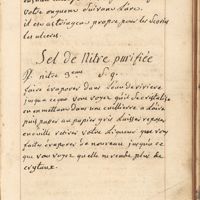 votre onguent suivant l'art.
il est astringent propre pour les
les ulceres.
Sel de Nitre purifiée
℞ nitre 3ème S. q.
faire evaporer dans l'eau de riviere
jusqu'a ce que vous voyez qu'il se cristalise
en en mettant dans une cuilliere a
puis passer au papier gris laisser reposer
ensuitte retirer votre liqueur que vous
faites evaporer de nouveau jusqu'a ce
que vous voyez qu'elle ne rende plus de
cristaux.